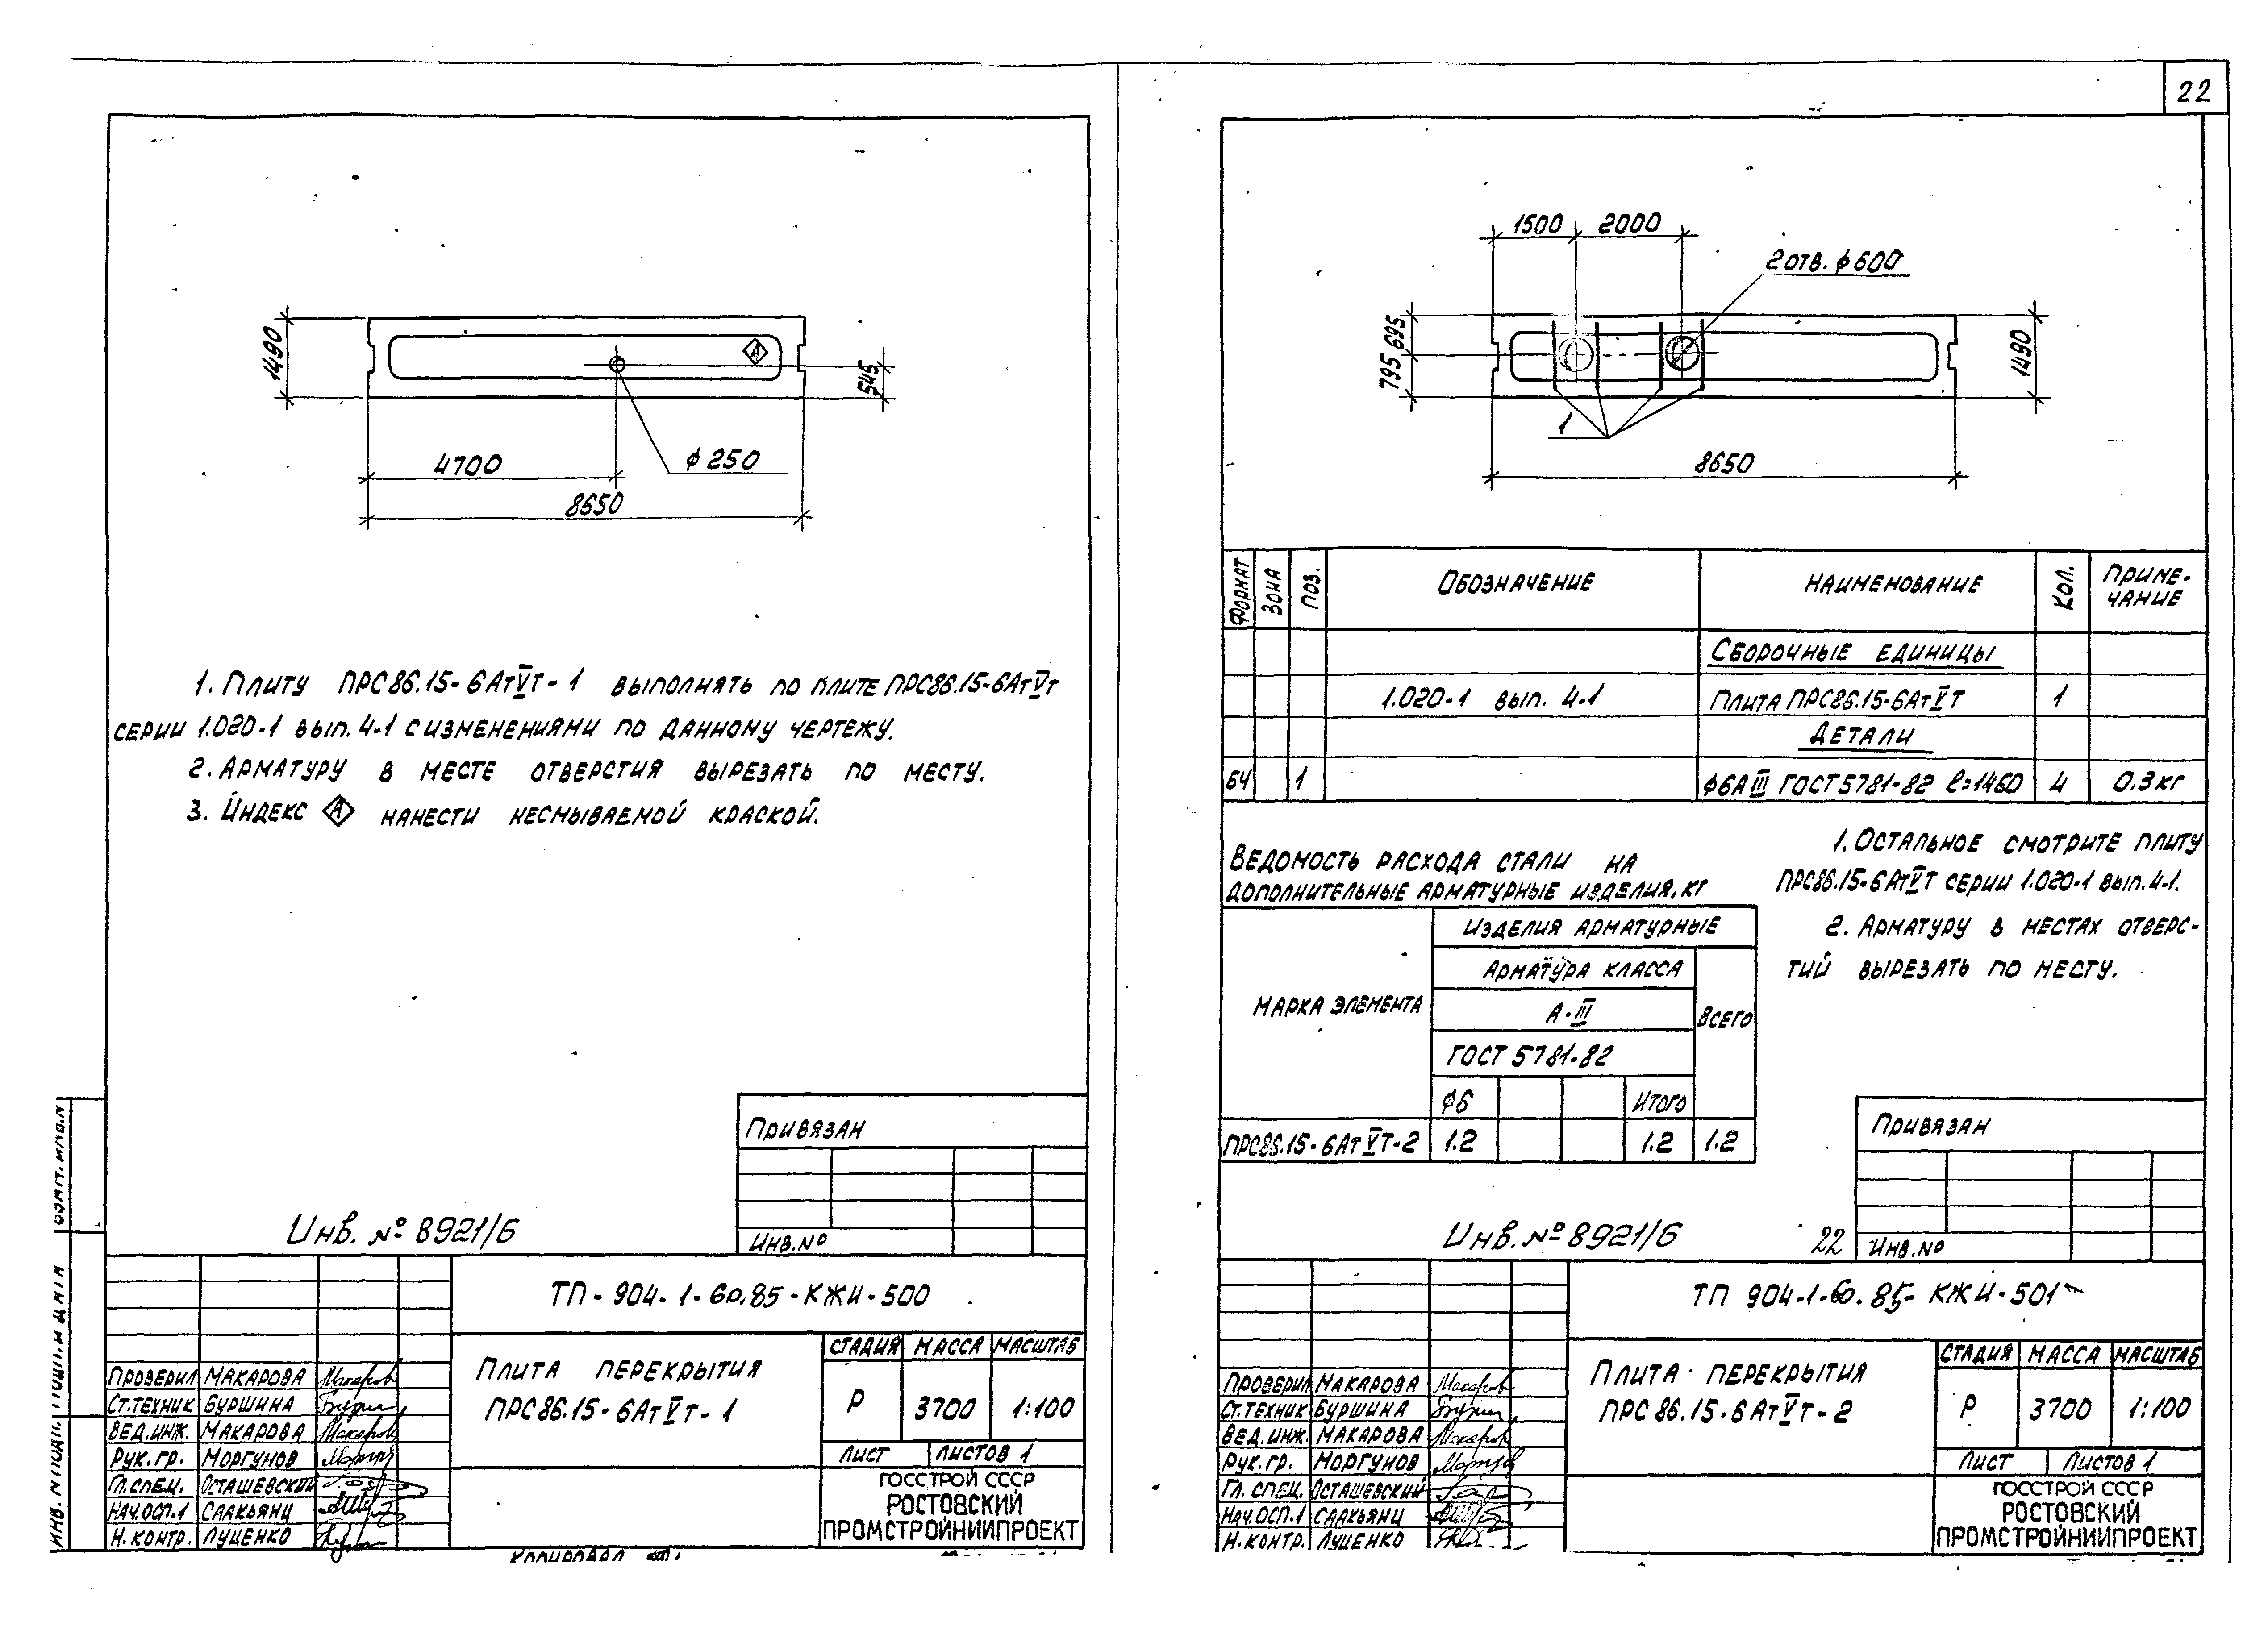 22
1490
А
545
4700
ϕ 250
8650
1. Плиту ПРС86.15-6АтVт-1 выполнять по плите ПРС86.15-6АтVт
серии 1.020-1 вып. 4-1 с изменениями по данному чертежу.
2. Арматуру в месте отверстия вырезать по месту.
3. Индекс А нанести несмываемой краской.
Привязан
Инв.№
Инв. № 8921/6
ТП-904-1-60.85-КЖИ-500
Плита перекрытия
ПРС86.15-6АтVт-1
Стадия Масса Масштаб
Р 3700 1:100
Лист Листов 1
ГОССТРОЙ СССР
РОСТОВСКИЙ
ПРОМСТРОЙНИИПРОЕКТ
Проверил Макарова
Ст.техник Буршина
Вед.инж. Макарова
Рук.гр. Моргунов
Гл.спец. Осташевский
Нач.осп.1 Саакьянц
Н.контр. Луценко
Копировал
1500 2000
2 отв. ϕ600
695
795
1490
1
8650
Формат Зона Поз. Обозначение Наименование Кол. Приме-
чание
Сборочные единицы
1.020-1 вып. 4-1 Плита ПРС86.15-6АтVт 1
Детали
БЧ 1 ϕ6АIII ГОСТ 5781-82 ℓ=1460 4 0.3 кг
Ведомость расхода стали на
дополнительные арматурные изделия, кг
Марка элемента
Изделия арматурные
Арматура класса
А-III
Всего
ГОСТ 5781-82
ϕ6 Итого
ПРС86.15-6АтVт-2 1.2 1.2 1.2
1. Остальное смотрите плиту
ПРС86.15-6АтVт серии 1.020-1 вып. 4-1.
2. Арматуру в местах отверс-
тий вырезать по месту.
Привязан
Инв.№
Инв. № 8921/6
22
ТП 904-1-60.85-КЖИ-501
Плита перекрытия
ПРС 86.15-6АтVт-2
Стадия Масса Масштаб
Р 3700 1:100
Лист Листов 1
ГОССТРОЙ СССР
РОСТОВСКИЙ
ПРОМСТРОЙНИИПРОЕКТ
Проверил Макарова
Ст.техник Буршина
Вед.инж. Макарова
Рук.гр. Моргунов
Гл. спец. Осташевский
Нач.осп.1 Саакьянц
Н.контр. Луценко